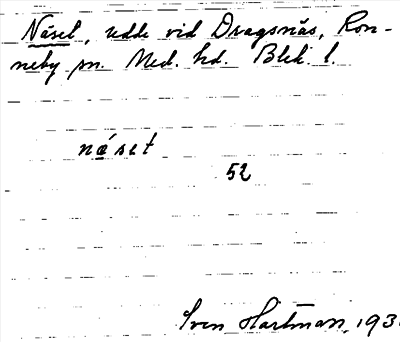 Näset, udde vid Dragsnäs, Ron-
neby sn. Med. hd. Blek. l.
næ´set
52
Sven Hartman, 193